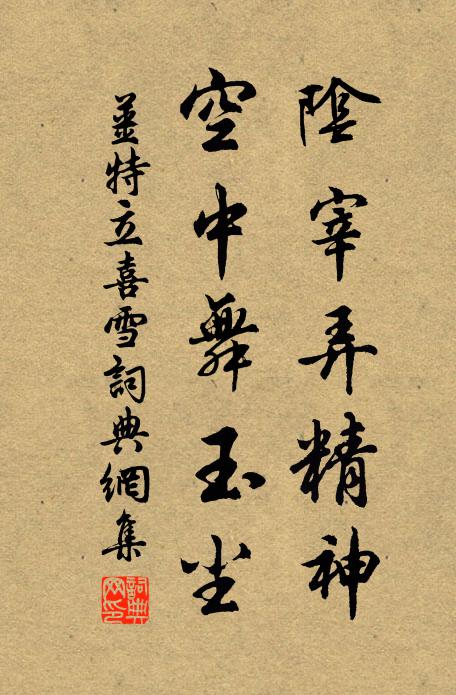 陰宰弄精神
空中舞玉尘
薑特立喜雪詞典網集
詞典网印